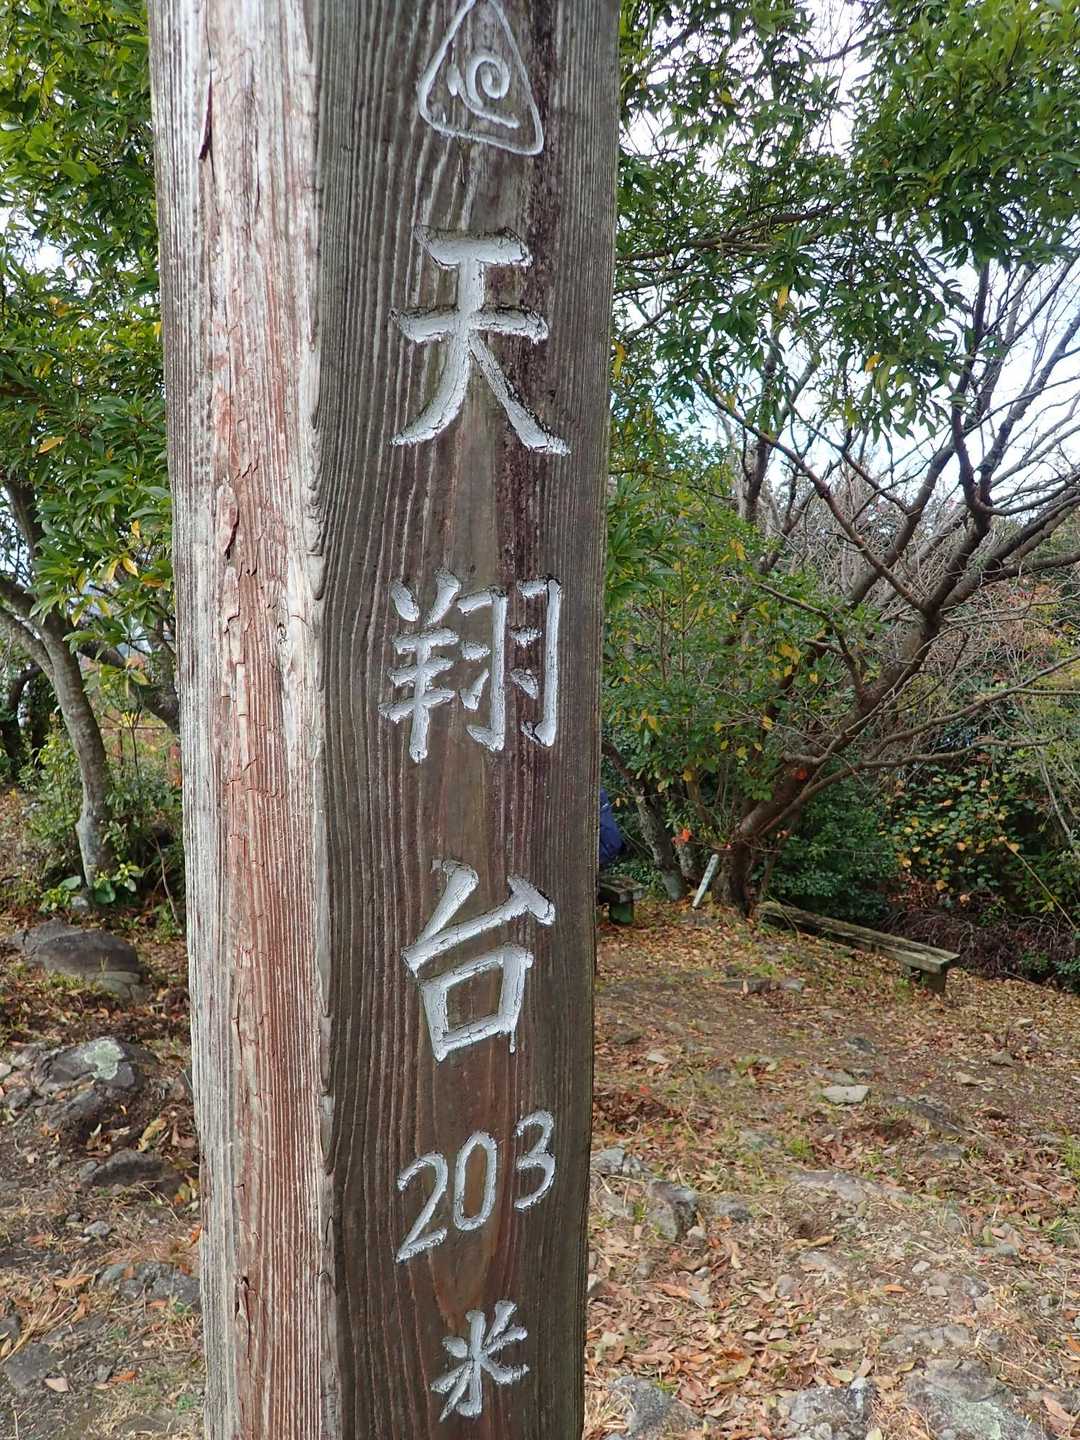 天翔台
203
米